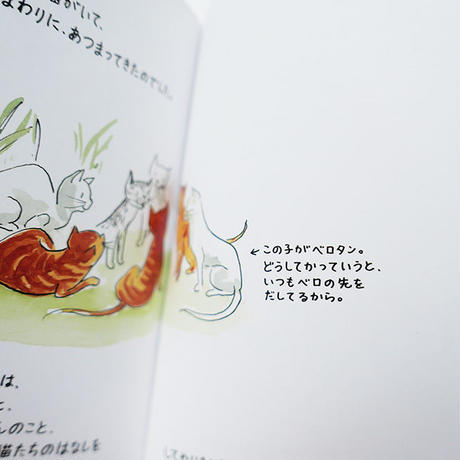 猫がいて、
まわりに、あつまってきたのでした。
←この子がベロタン。
どうしてかっていうと、
いつもベロの先を
だしてるから。
は、
と、
んのこと、
猫たちのはなしを